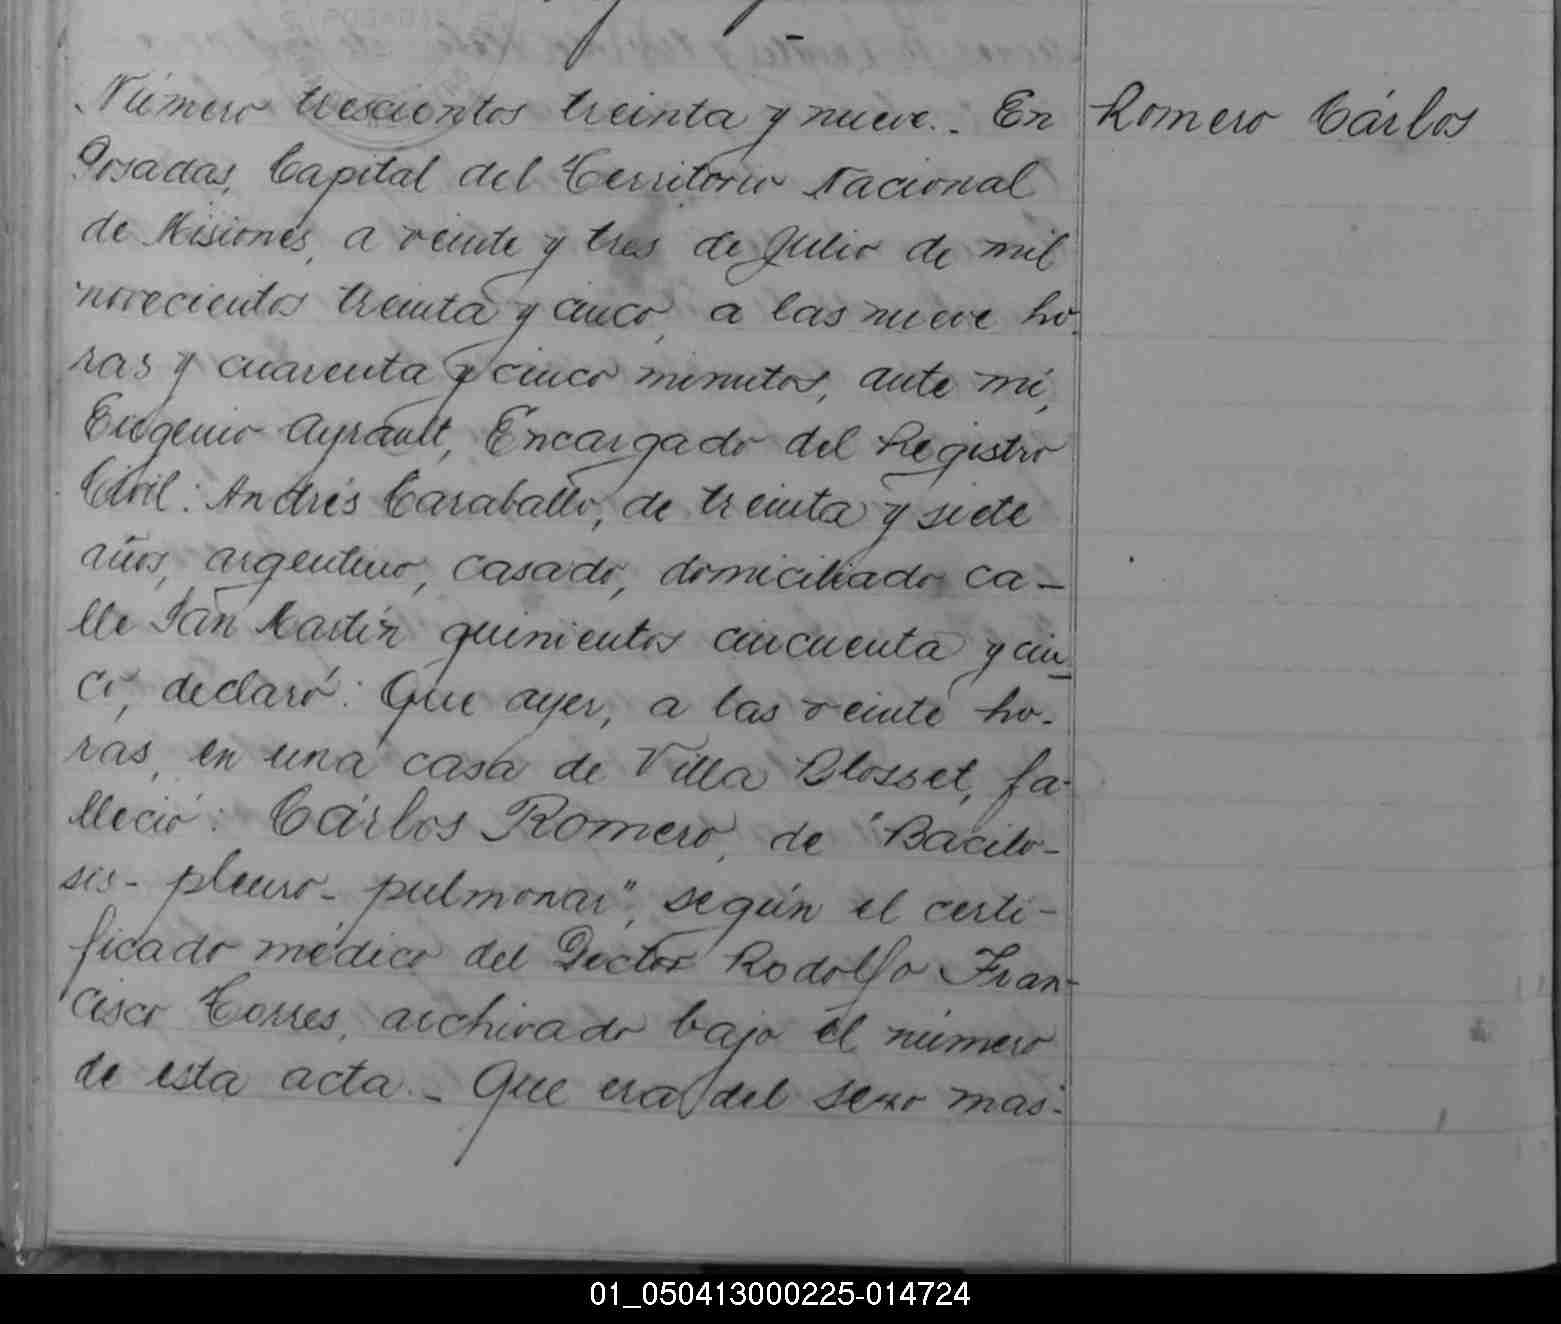 Número trescientos treinta y nueve.- En
Romero Cárlos
Posadas, Capital del Territorio Nacional
de Misiones, a veinte y tres de Julio de mil
novecientos treinta y cinco, a las nueve ho-
ras y cuarenta y cinco minutos, ante mi,
Eugenio Ayrault, Encargado del Registro
Civil: Andrés Caraballo, de treinta y siete
años, argentino, casado, domiciliado ca-
lle San Martín quinientos cincuenta y cin
co, declaró: Que ayer, a las veinte ho-
ras, en una casa de Villa Blosset, fa-
lleció: Cárlos Romero, de "Bacilo-
sis- pleuro- pulmonar", según el certi-
ficado médico del Doctor Rodolfo Fran-
cisco Torres, archivado bajo el número
de esta acta.- Que era del sexo mas-
01_050413000225-014724